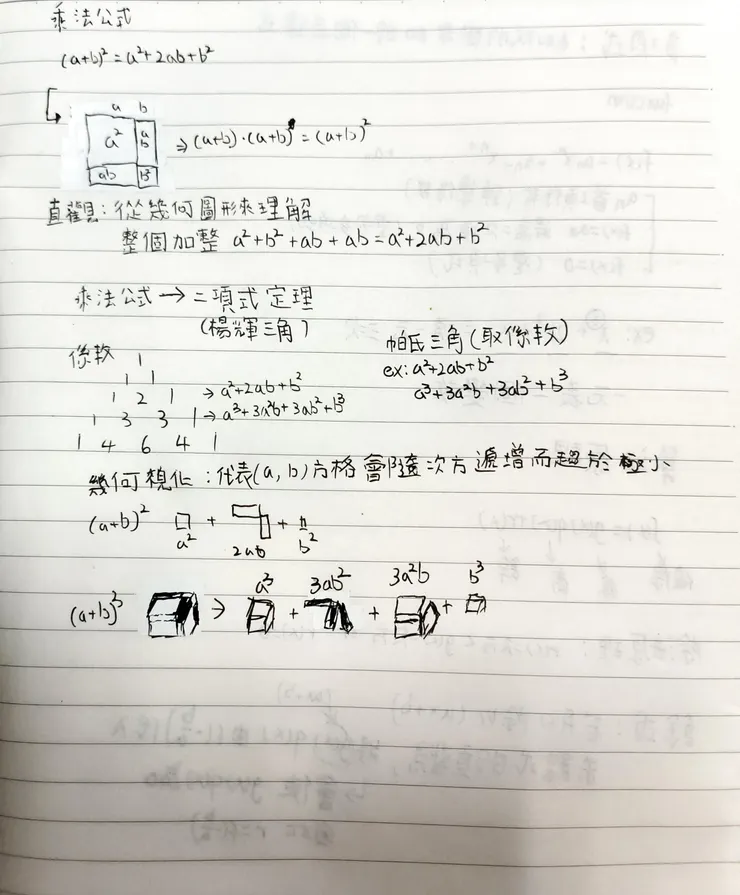 乘法公式
(a+b)²=a²+2ab+b²
a b
a² ab
⇒(a+b)·(a+b)=(a+b)²
ab b²
直觀:從幾何圖形來理解
整個加整 a²+b²+ab+ab=a²+2ab+b²
乘法公式→二項式定理
(楊輝三角)
係數
1
1 1
1 2 1 →a²+2ab+b²
1 3 3 1→a³+3a²b+3ab²+b³
1 4 6 4 1
帕氏三角(取係數)
ex: a²+2ab+b²
a³+3a²b+3ab²+b³
幾何視化:代表(a,b)方格會隨次方遞增而趨於極小
(a+b)² + +
a² 2ab b²
a³ 3ab² 3a²b b³
(a+b)³ → + + +